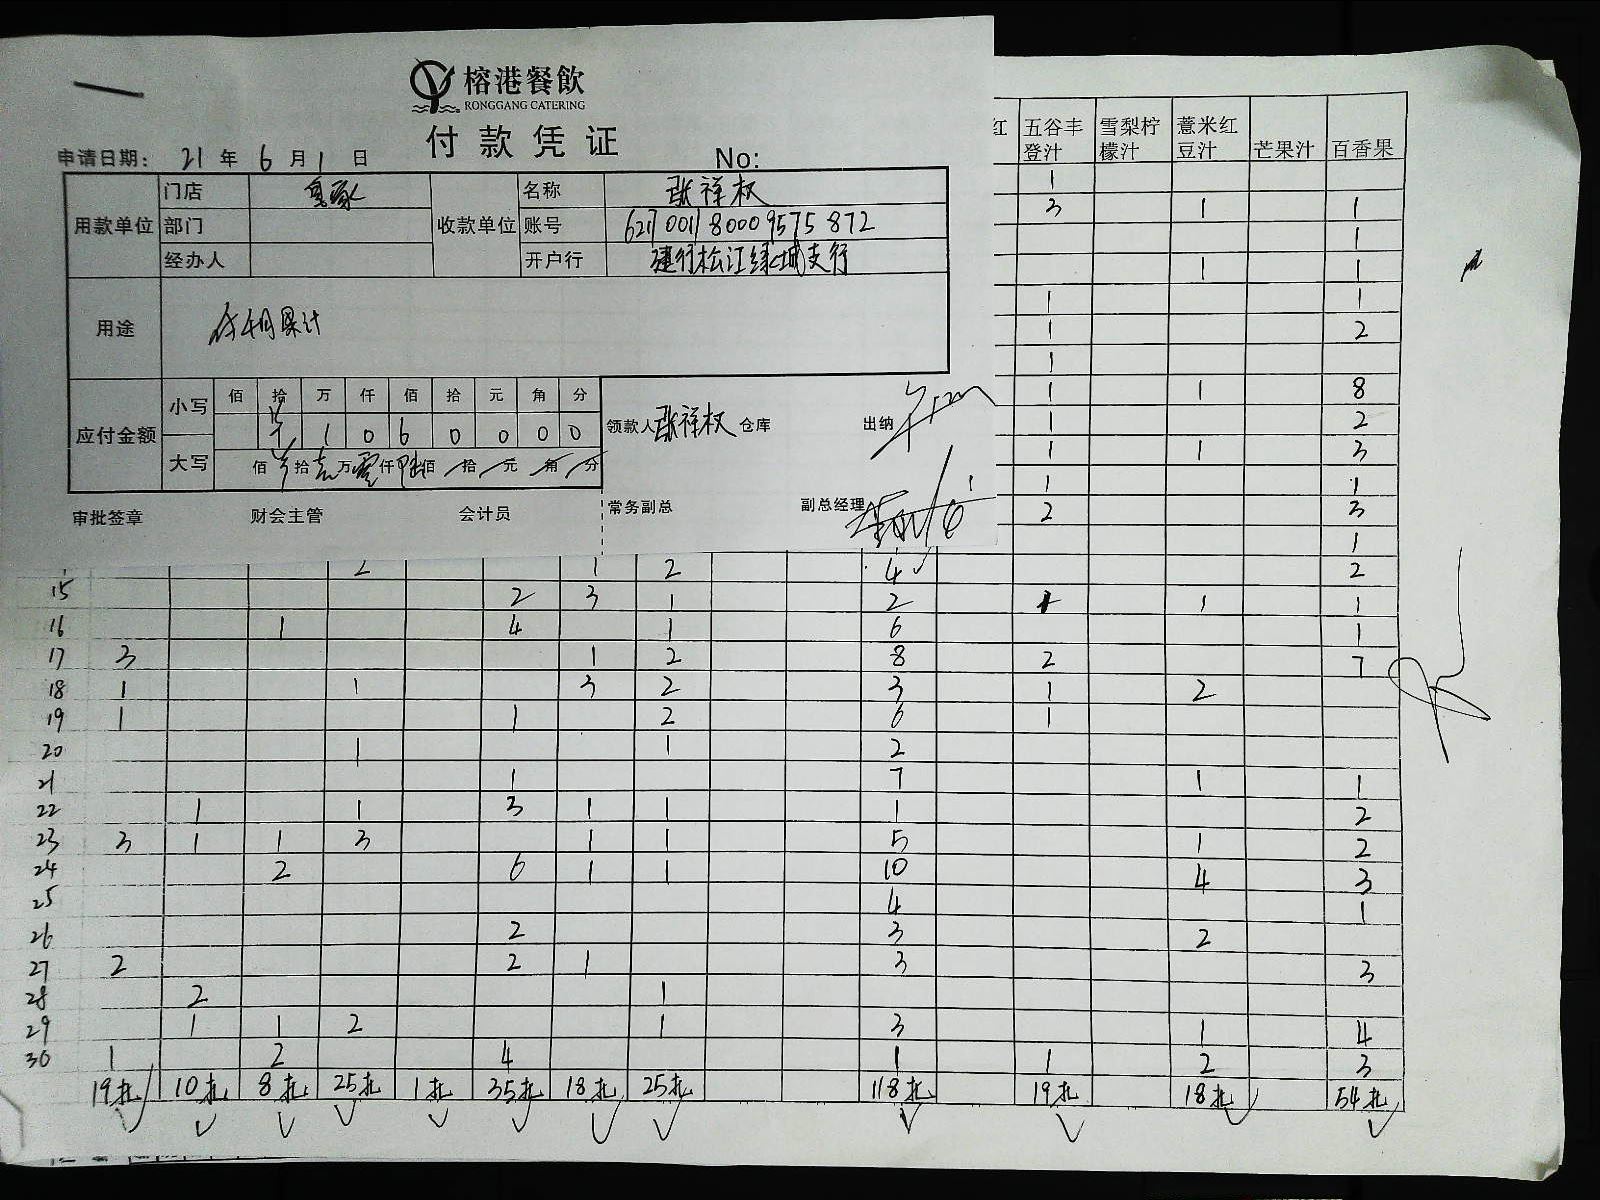 榕港餐飲
RONGGANG CATERING
付款凭证
申请日期： 21 年 6 月 1 日 No:
用款单位 门店 收款单位 名称 张祥权
部门 账号 6217001180009575872
经办人 开户行 建行松江绿城支行
用途
应付金额 小写 佰 拾 万 仟 佰 拾 元 角 分
1 0 6 0 0 0 0
大写 佰 拾 万 零 仟 陆 佰 拾 元 角 分
领款人 张祥权 仓库 出纳
审批签章 财会主管 会计员 常务副总 副总经理
红 五谷丰登汁 雪梨柠檬汁 薏米红豆汁 芒果汁 百香果
1
3 1 1
1
1 1
1 1
1 2
1
1 1 8
1 2
1 1 3
1 1
2 3
1
2 1 2 4 2
15 2 3 1 2 1 1
16 1 4 1 6 1
17 3 1 2 8 2 7
18 1 1 3 2 3 1 2
19 1 1 2 6 1
20 1 1 2
21 1 7 1 1
22 1 1 3 1 1 1 2
23 3 1 1 3 1 1 5 1 2
24 2 6 1 1 10 4 3
25 4 1
26 2 3 2
27 2 2 1 3 3
28 2 1
29 1 1 2 1 3 1 4
30 1 2 4 1 1 2 3
19扎 10扎 8扎 25扎 1扎 35扎 18扎 25扎 118扎 19扎 18扎 54扎